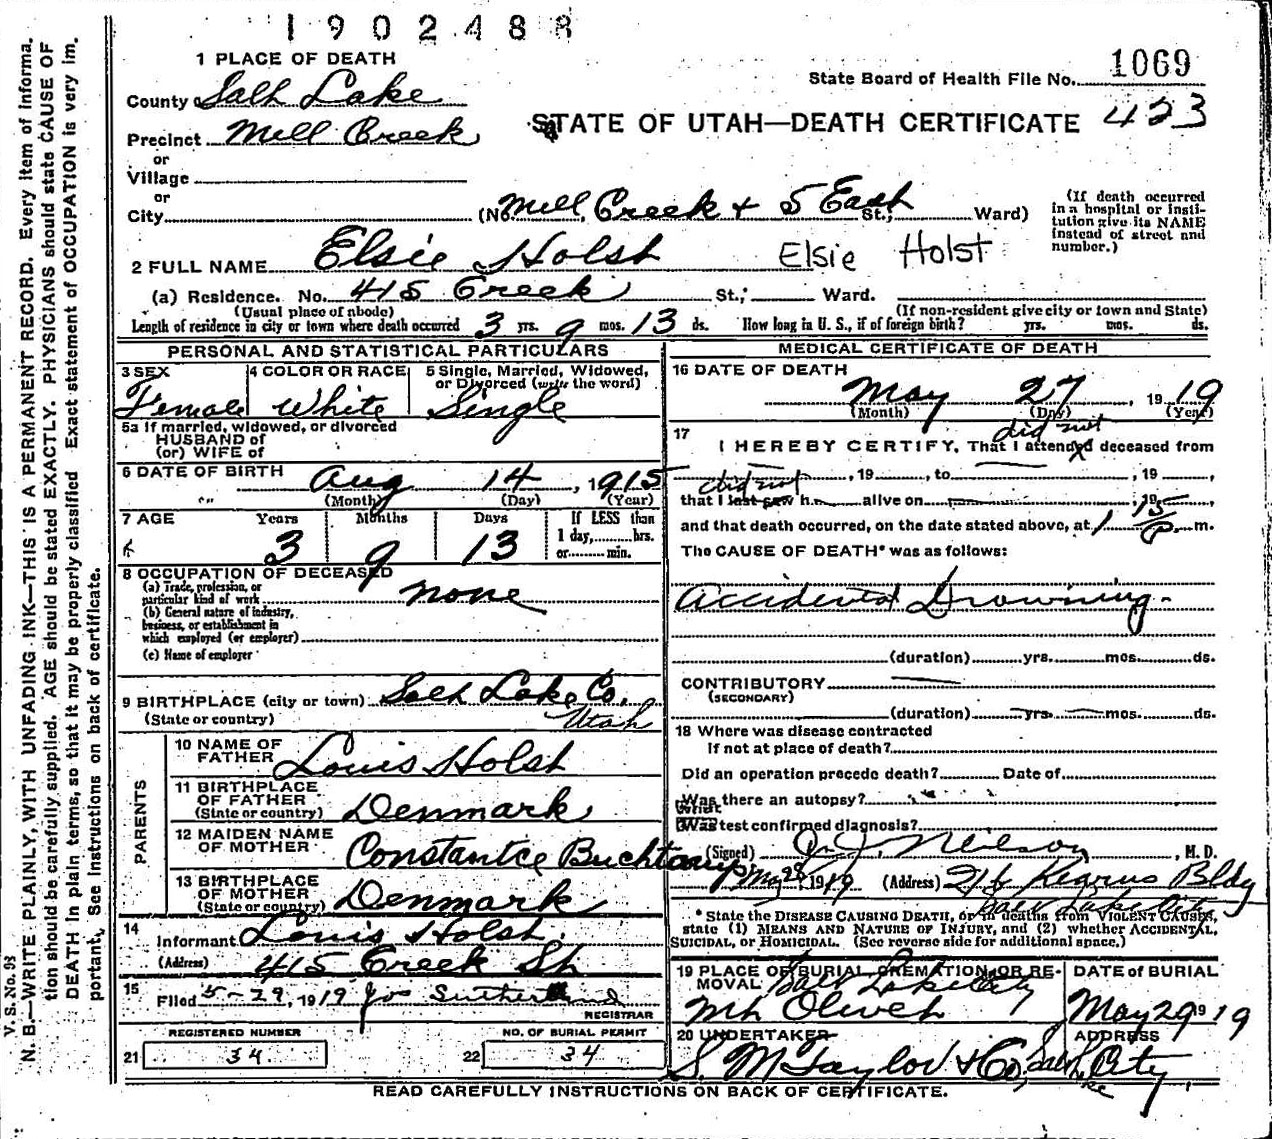 1902488
1 PLACE OF DEATH
State Board of Health File No. 1069
County of Salt Lake
423
Precinct Mill Creek
STATE OF UTAH—DEATH CERTIFICATE
or
Village
or
City (No. Mill Creek + 5 East St.; Ward)
(If death occurred in a hospital or institution give its NAME instead of street and number.)
2 FULL NAME Elsie Holst Elsie Holst
(a) Residence. No. 415 Creek St.; Ward.
(Usual place of abode) (If non-resident give city or town and State)
Length of residence in city or town where death occurred 3 yrs. 9 mos. 13 ds. How long in U. S., if of foreign birth? yrs. mos. ds.
PERSONAL AND STATISTICAL PARTICULARS
3 SEX Female
4 COLOR OR RACE White
5 Single, Married, Widowed, or Divorced (write the word) Single
5a If married, widowed, or divorced
HUSBAND of
(or) WIFE of
6 DATE OF BIRTH Aug 14, 1915
(Month) (Day) (Year)
7 AGE Years 3 Months 9 Days 13
If LESS than 1 day, hrs. or min.
8 OCCUPATION OF DECEASED
(a) Trade, profession, or particular kind of work none
(b) General nature of industry, business, or establishment in which employed (or employer)
(c) Name of employer
9 BIRTHPLACE (city or town) Salt Lake Co.
(State or country) Utah
PARENTS
10 NAME OF FATHER Louis Holst
11 BIRTHPLACE OF FATHER (State or country) Denmark
12 MAIDEN NAME OF MOTHER Constantce Buchtamp
13 BIRTHPLACE OF MOTHER (State or country) Denmark
14 Informant Louis Holst.
(Address) 415 Creek St
15 Filed 5-29, 1919 Jos Sutherland
REGISTRAR
REGISTERED NUMBER
21 34
NO. OF BURIAL PERMIT
22 34
MEDICAL CERTIFICATE OF DEATH
16 DATE OF DEATH
May 27, 1919
(Month) (Day) (Year)
did not
17 I HEREBY CERTIFY, That I attended deceased from
, 19 , to , 19 ,
did not
that I last saw h alive on , 19
and that death occurred, on the date stated above, at 1 15 P m.
The CAUSE OF DEATH* was as follows:
Accidental Drowning.
(duration) yrs. mos. ds.
CONTRIBUTORY
(SECONDARY)
(duration) yrs. mos. ds.
18 Where was disease contracted
If not at place of death?
Did an operation precede death? Date of
Was there an autopsy?
What test confirmed diagnosis?
(Signed) J. J. Neilson, M. D.
May 28 1919 (Address) 216 Kearns Bldg
Salt Lake City
* State the DISEASE CAUSING DEATH, or in deaths from VIOLENT CAUSES, state (1) MEANS AND NATURE OF INJURY, and (2) whether ACCIDENTAL, SUICIDAL, or HOMICIDAL. (See reverse side for additional space.)
19 PLACE OF BURIAL, CREMATION, OR REMOVAL Salt Lake City
Mt Olivet
DATE OF BURIAL
May 29 1919
20 UNDERTAKER
S. M Taylor & Co,
ADDRESS
Salt Lake City
READ CAREFULLY INSTRUCTIONS ON BACK OF CERTIFICATE.
V. S. No. 93
N. B.—WRITE PLAINLY, WITH UNFADING INK—THIS IS A PERMANENT RECORD. Every item of informa-
tion should be carefully supplied. AGE should be stated EXACTLY. PHYSICIANS should state CAUSE OF
DEATH in plain terms, so that it may be properly classified. Exact statement of OCCUPATION is very im-
portant. See instructions on back of certificate.